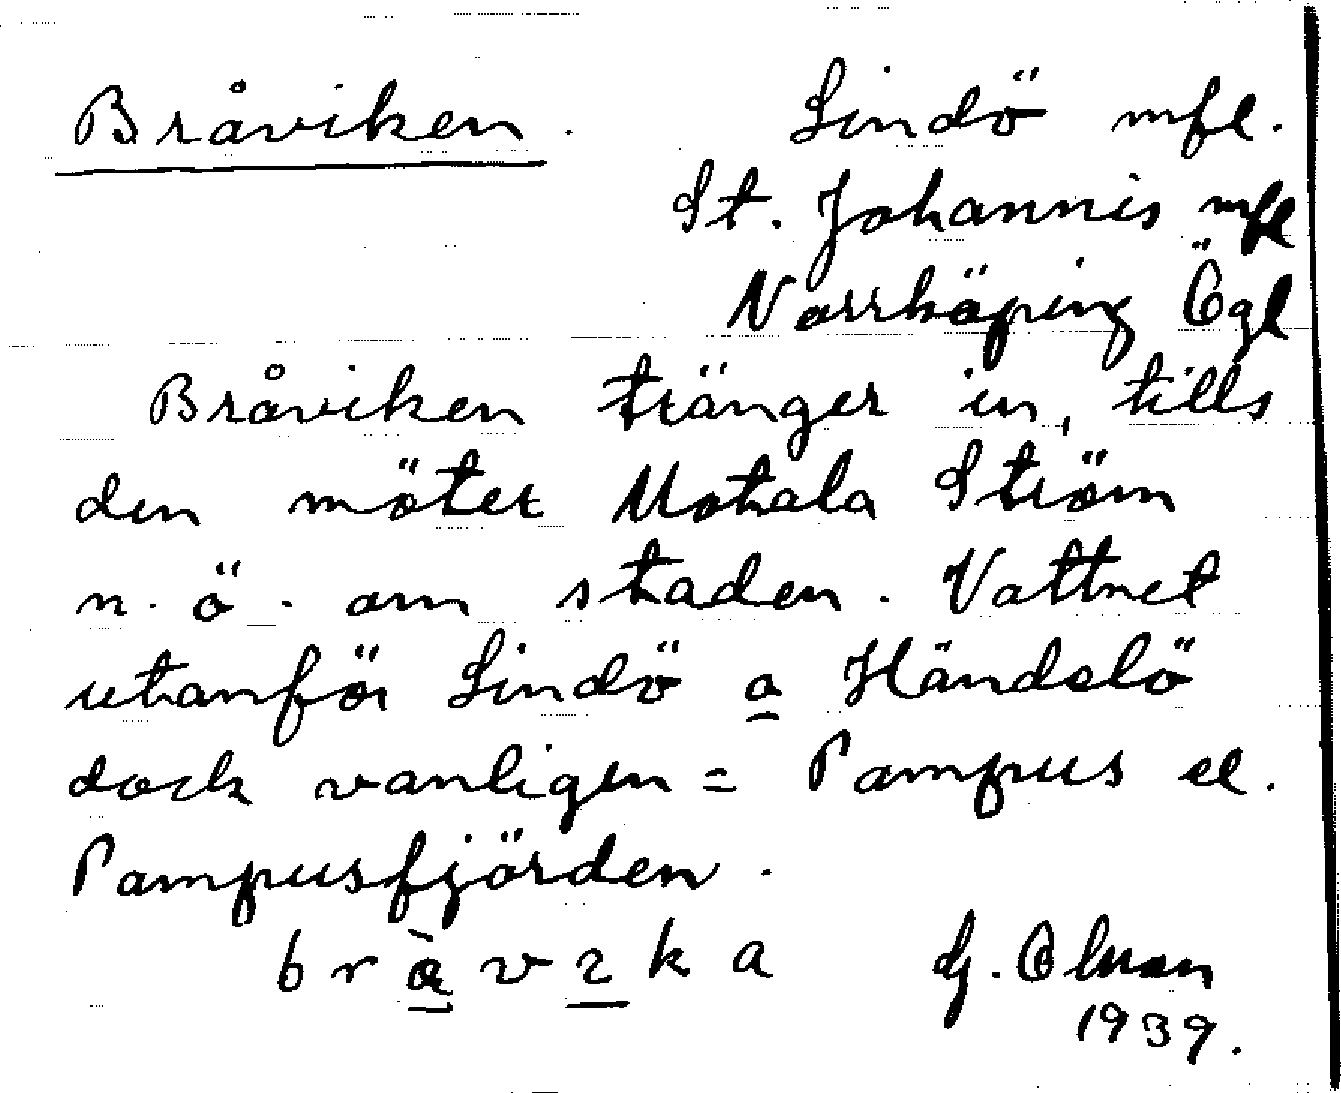 Bråviken. Lindö mfl.
St. Johannis mfl
Norrköping Ögl
Bråviken tränger in, tills
den möter Motala Ström
n. ö. om staden. Vattnet
utanför Lindö o Händelö
dock vanligen = Pampus el.
Pampusfjörden.
bràvzka G. Olman
1939.